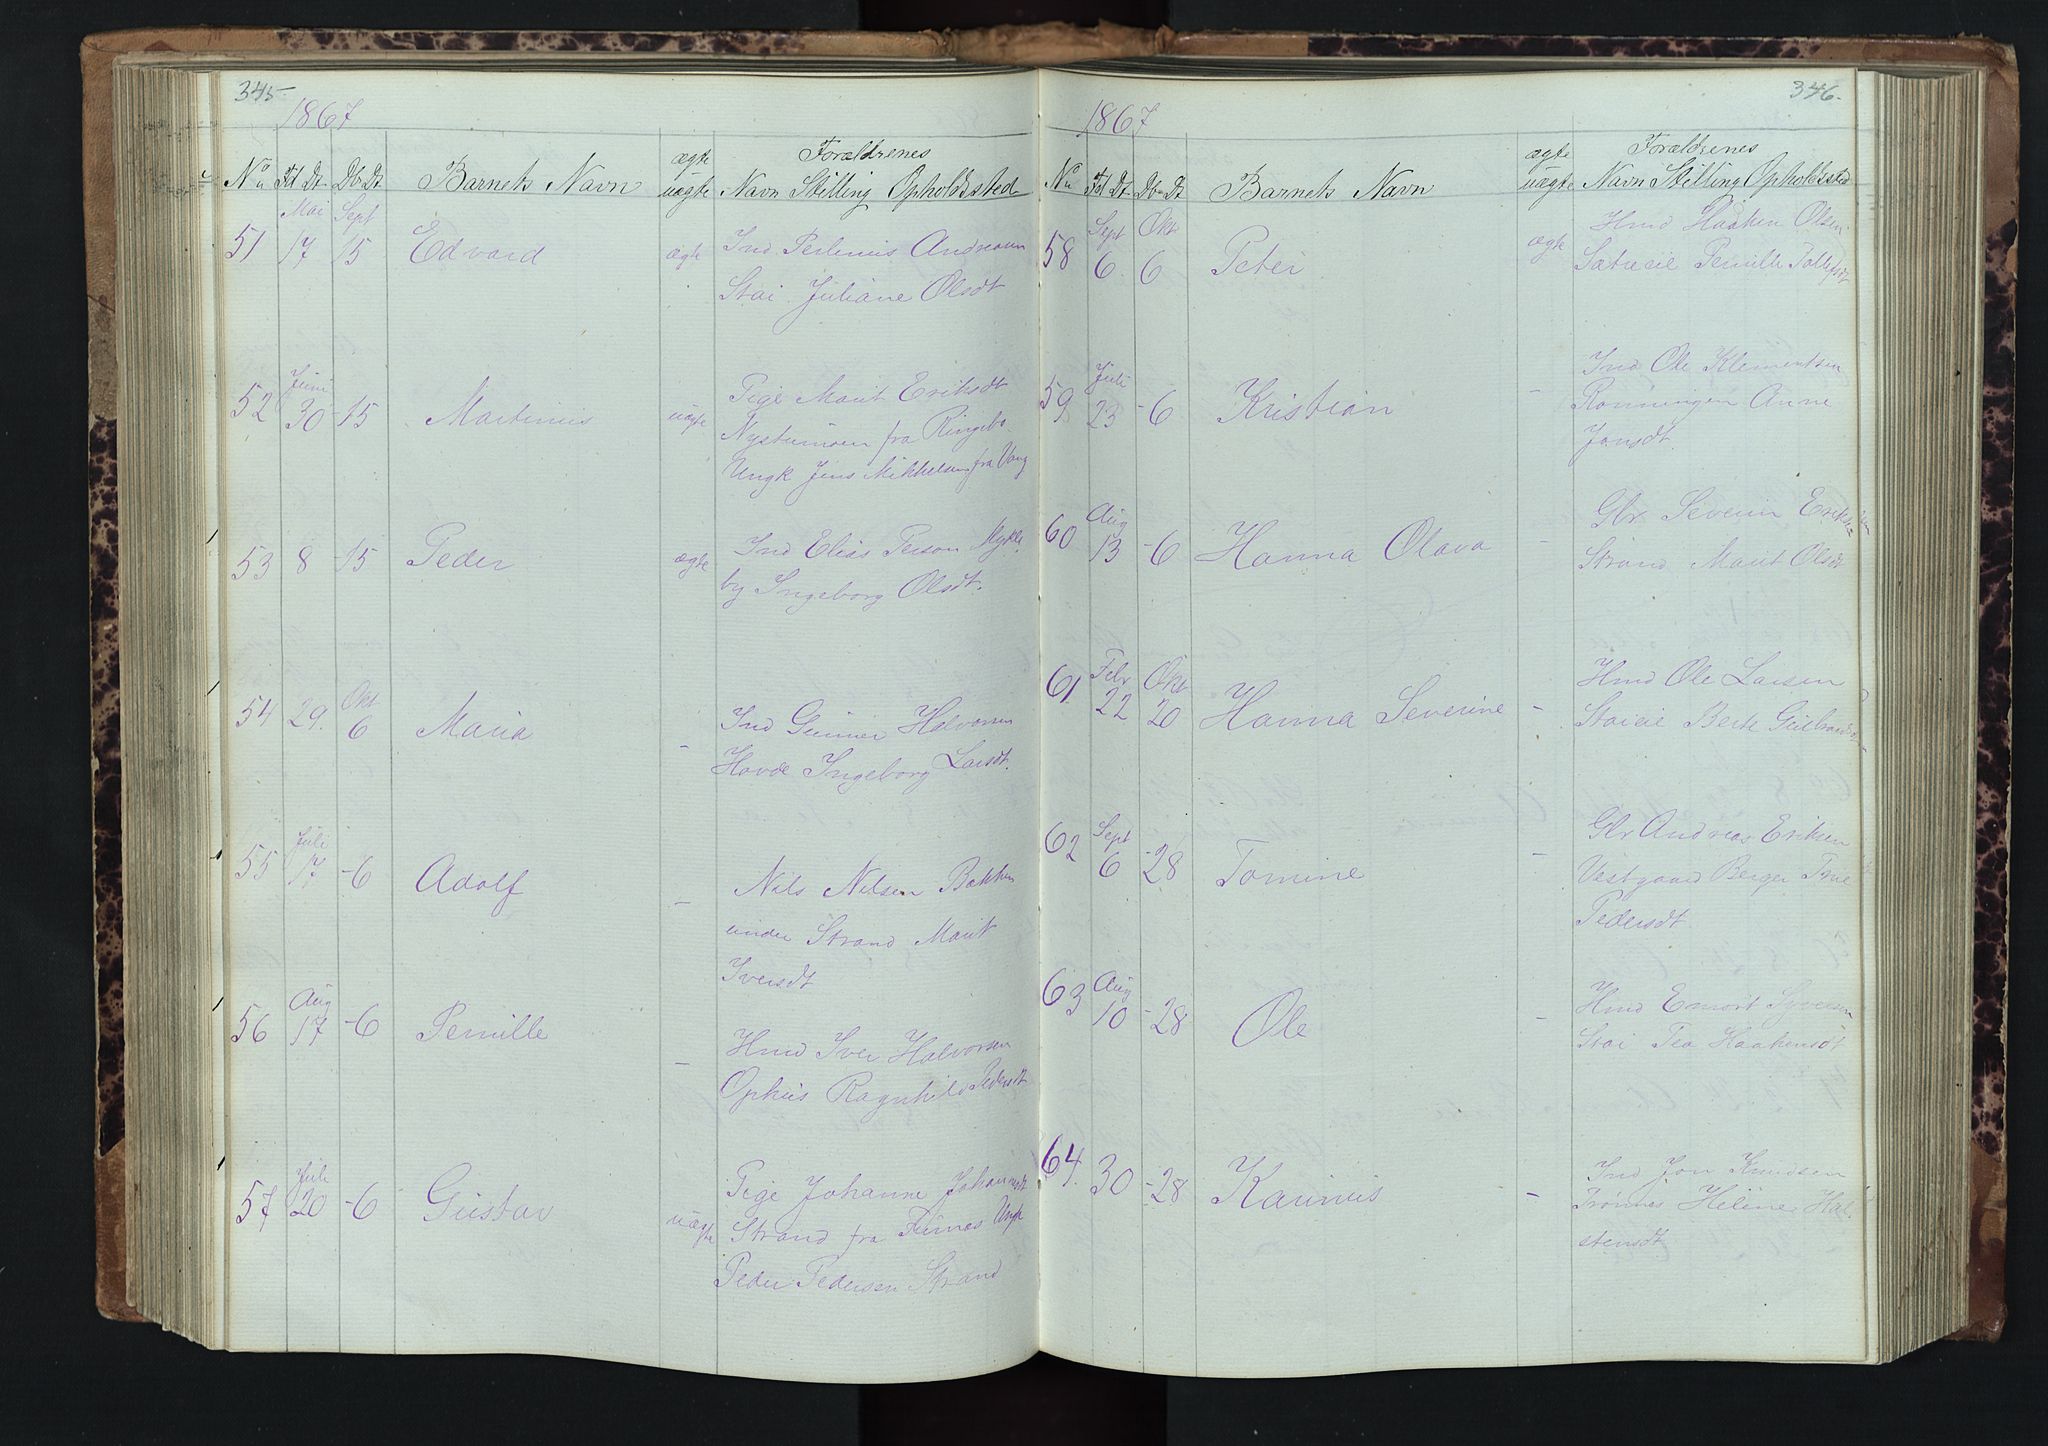 345.
1867
Forældrenes
ægte
No Fd Dt. Db. Dt. Barnets Navn uægte Navn Stilling Opholdssted
Mai Sept
51 17 15 Edvard ægte Ind
Stai. Juliane Olsdt
Juni
52 30 -15 Martinus uægte Pige Marit Eriksdt
Nystumoen fra Ringebo.
Ungk Jens Mikkelsen fra Vang
53 8 -15 Peder ægte Ind Elias Person Mykle
by Ingeborg Olsdt.
Okt
54 29. 6 Maria - Ind Gunner Halvorsen
Hovde Ingeborg Larsdt.
Juli
55 17. -6 Adolf - Nils Nilsen Bakken
under Strand Marit
Iversdt
Aug
56 17 -6 Pernille - Hmd Iver Halvorsen
Ophus Ragnhild Pedersdt
Juli
57 20 -6 Gustav uægte Pige Johanne Johannesdt
Strand fra Furnes Ungk
Peder Pedersen Strand
346.
1867
Forældrenes
ægte
No Fd Dt. Db Dt Barnets Navn uægte Navn Stilling Opholdssted
Sept Okt
58 6. 6 Peter ægte Hmd Haaken Olsen
Sætreeie Pernille Tollefsdt
Juli
59 23 -6 Kristian - Ind Ole Klementsen
Rønningen Anne
Jonsdt
Aug
60 13 -6 Hanna Olava - Glr. Severin Eriksen
Strand Marit Olsdt
Febr Okt
61. 22 20 Hanna Severine - Hmd Ole Larsen
Staieie Berte Gulbrandsdt
Sept
62 6 -28 Tomine - Glr Andreas Eriksen
Vestgaard Berger Tine
Pedersdt
Aug
63 10 -28 Ole - Hmd Embret Syversen
Stai Tea Haakensdt
64. 30 -28 Karinus - Ind Jon Knudsen
Trønnes Heline Hal
stensdt